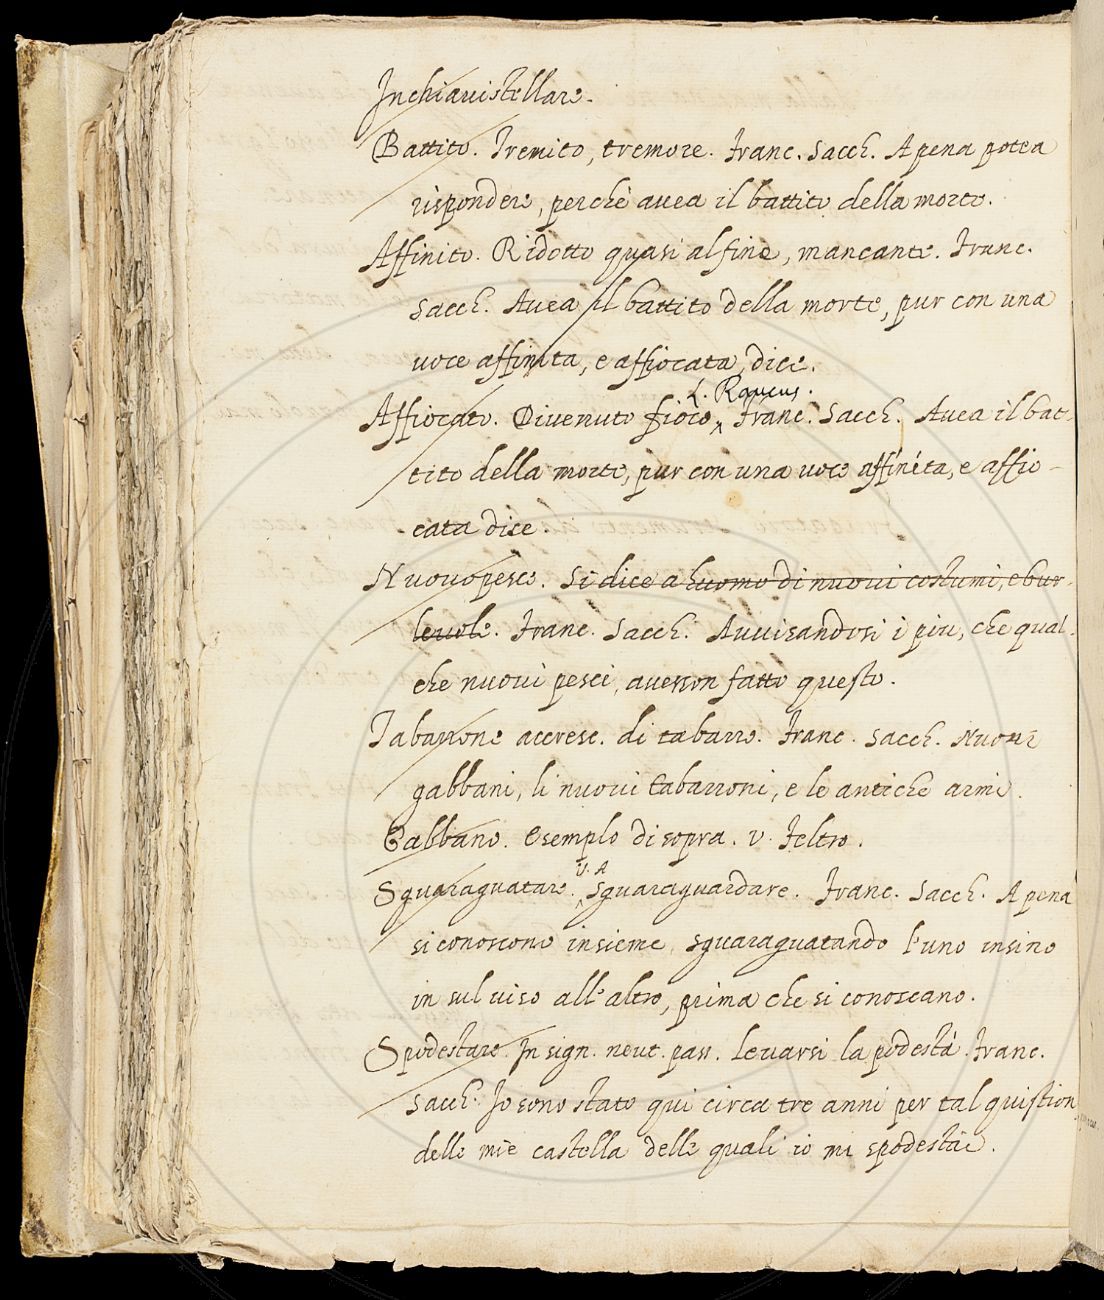 Inchiavistellare.
Battito. Tremito, tremore. Franc. Sacch. A pena potea
rispondere, perchè avea il battito della morte.
Affinito. Ridotto quasi al fine, mancante. Franc.
Sacch. Avea il battito della morte, pur con una
voce affinita, e affiocata, dice.
L. Raucus.
Affiocato. Divenuto fioco, Franc. Sacch. Avea il bat-
tito della morte, pur con una voce affinita, e affio-
cata dice.
Nuovo pesce. Si dice a huomo di nuovi costumi, e bur-
levole. Franc. Sacch. Avvisandosi i piu, che qual-
che nuovi pesci avesson fatto questo.
Tabarrone accresc. di tabarro. Franc. Sacch. Nuovi
gabbani, li nuovi tabarroni, e le antiche armi.
Gabbano. Esemplo di sopra. v. Feltro.
v. A
Squaraguatare. Sguaraguardare. Franc. Sacch. A pena
si conoscono insieme, sguaraguatando l'uno insino
in sul viso all'altro, prima che si conoscano.
Spodestare. In sign. neut. pass. Levarsi la podestà. Franc.
Sacch. Io sono stato qui circa tre anni per tal quistion
delle mie castella delle quali io mi spodestai.